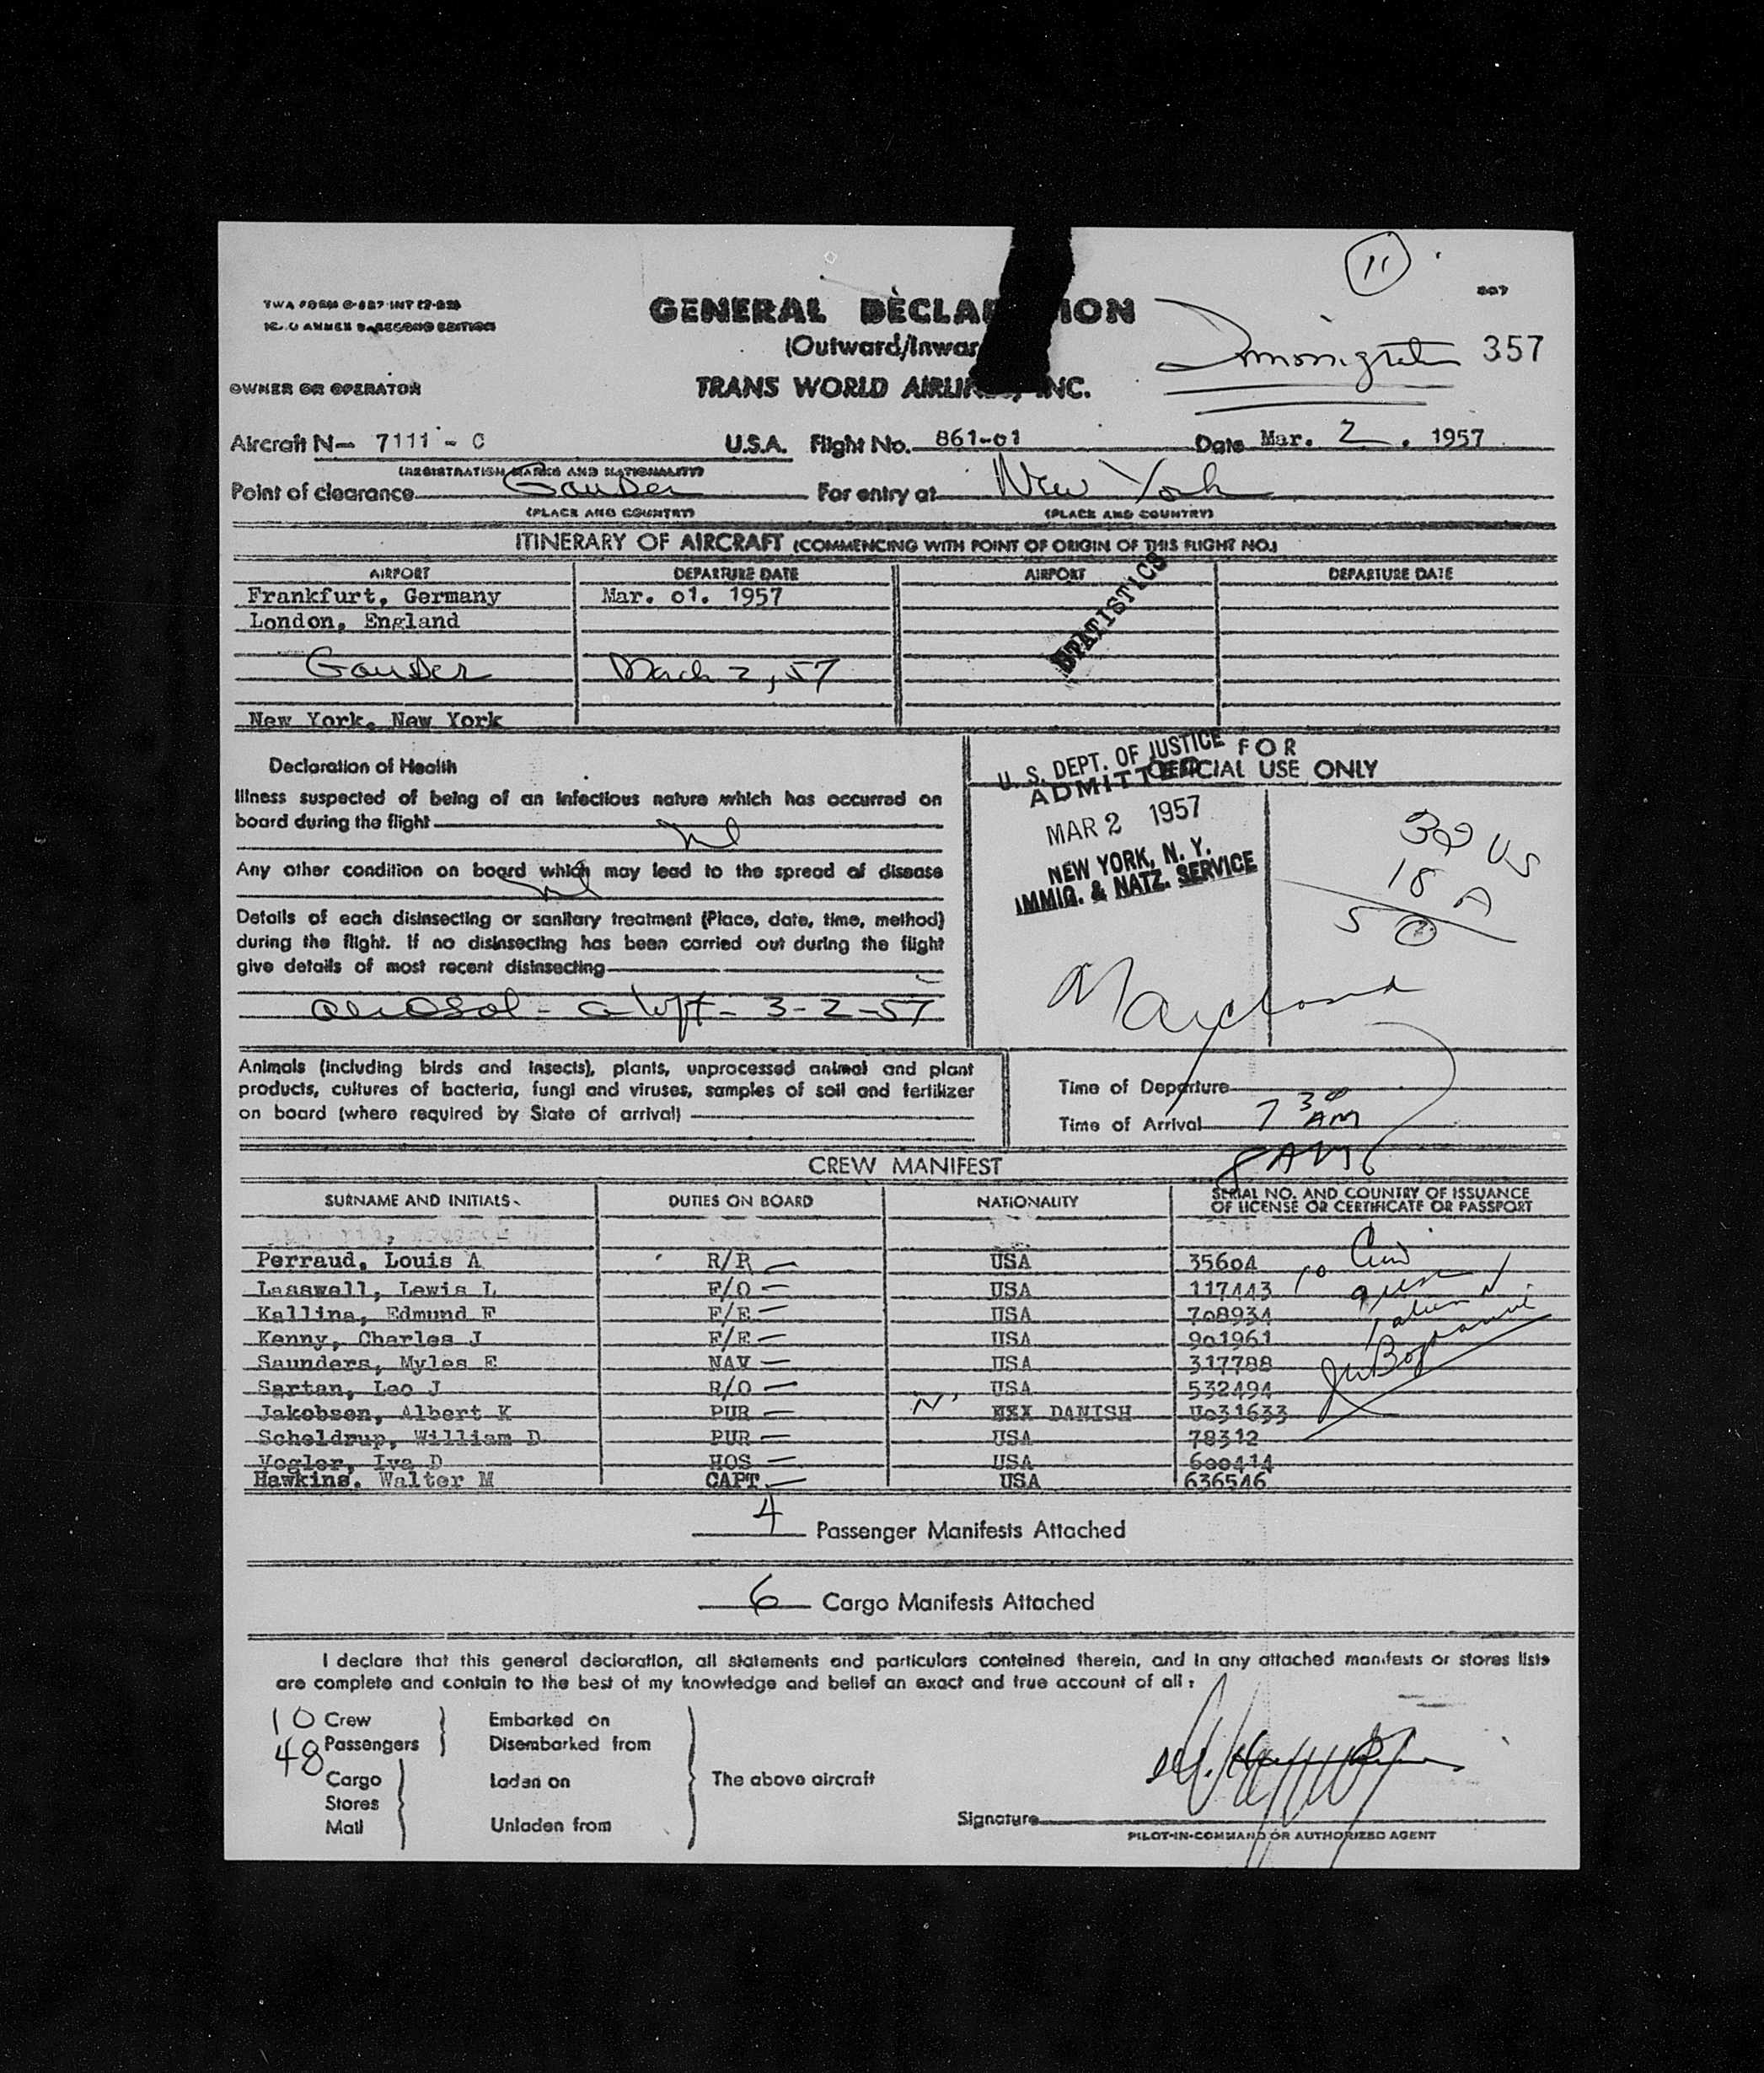 11
TWA FORM
ICAO ANNEX 9-SECOND EDITION
GENERAL DECLA ION
(Outward/Inwar
TRANS WORLD AIRLIN , INC.
357
OWNER OR OPERATOR
Aircraft N- 7111 - C U.S.A. Flight No. 861-01 Date Mar. 2. 1957
(REGISTRATION MARKS AND NATIONALITY)
Point of clearance Gander For entry at New York
(PLACE AND COUNTRY) (PLACE AND COUNTRY)
ITINERARY OF AIRCRAFT (COMMENCING WITH POINT OF ORIGIN OF THIS FLIGHT NO.)
AIRPORT DEPARTURE DATE AIRPORT DEPARTURE DATE
Frankfurt, Germany Mar. 01. 1957
London, England
Gander March 2, 57
New York. New York
STATISTICS
Declaration of Health
Illness suspected of being of an infectious nature which has occurred on
board during the flight nil
Any other condition on board which may lead to the spread of disease
nil
Details of each disinsecting or sanitary treatment (Place, date, time, method)
during the flight. If no disinsecting has been carried out during the flight
give details of most recent disinsecting
aerosol - aloft - 3-2-57
FOR
OFFICIAL USE ONLY
U. S. DEPT. OF JUSTICE
ADMITTED
MAR 2 1957
NEW YORK, N. Y.
IMMIG. & NATZ. SERVICE
US
18 A
Animals (including birds and insects), plants, unprocessed animal and plant
products, cultures of bacteria, fungi and viruses, samples of soil and fertilizer
on board (where required by State of arrival)
Time of Departure
Time of Arrival 7 30 AM
8 AM
CREW MANIFEST
SURNAME AND INITIALS DUTIES ON BOARD NATIONALITY SERIAL NO. AND COUNTRY OF ISSUANCE
OF LICENSE OR CERTIFICATE OR PASSPORT
Perraud, Louis A R/R USA 35604
Lasswell, Lewis L F/O USA 117443
Kallina, Edmund F F/E USA 708934
Kenny, Charles J F/E USA 901961
Saunders, Myles E NAV USA 317788
Sartan, Leo J R/O USA 532494
Jakobsen, Albert K PUR DANISH U031633
Scheldrup, William D PUR USA 78312
Vogler, Iva D HOS USA 600414
Hawkins. Walter M CAPT USA 636546
4 Passenger Manifests Attached
6 Cargo Manifests Attached
I declare that this general declaration, all statements and particulars contained therein, and in any attached manifests or stores lists
are complete and contain to the best of my knowledge and belief an exact and true account of all:
10 Crew Embarked on
48 Passengers Disembarked from
Cargo Laden on The above aircraft
Stores
Mail Unladen from
Signature
PILOT-IN-COMMAND OR AUTHORIZED AGENT